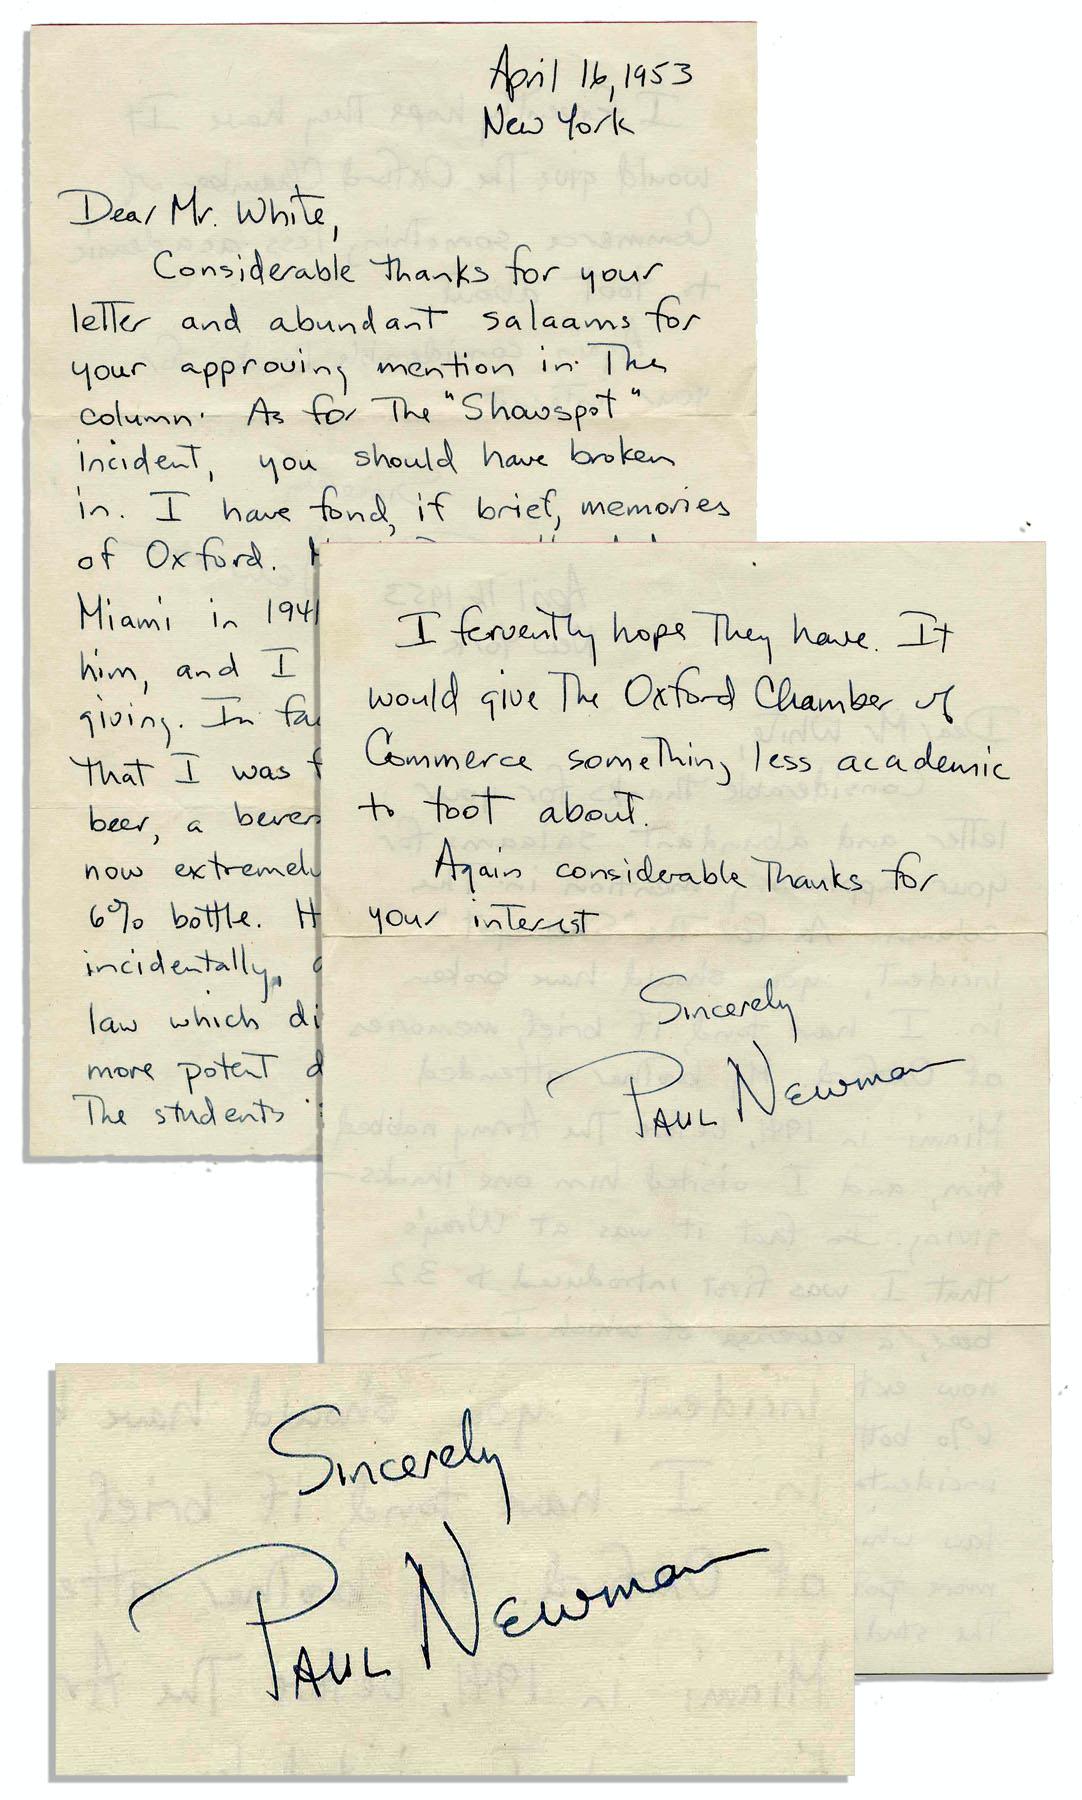 April 16, 1953
New York
Dear Mr. White,
Considerable thanks for your
letter and abundant salaams for
your approving mention in the
column. As for the "Showspot"
incident, you should have broken
in. I have fond, if brief, memories
of Oxford.
Miami in 1941
him, and I
giving. In
that I was
beer, a
now extremely
6% bottle.
incidentally,
law which
more potent
The students
I fervently hope they have. It
would give the Oxford Chamber of
Commerce something less academic
to toot about.
Again considerable thanks for
your interest
Sincerely
Paul Newman
Sincerely
Paul Newman